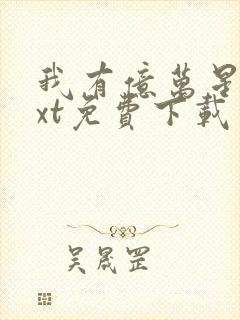 我有億萬星
xt免費下載
吳晟罡